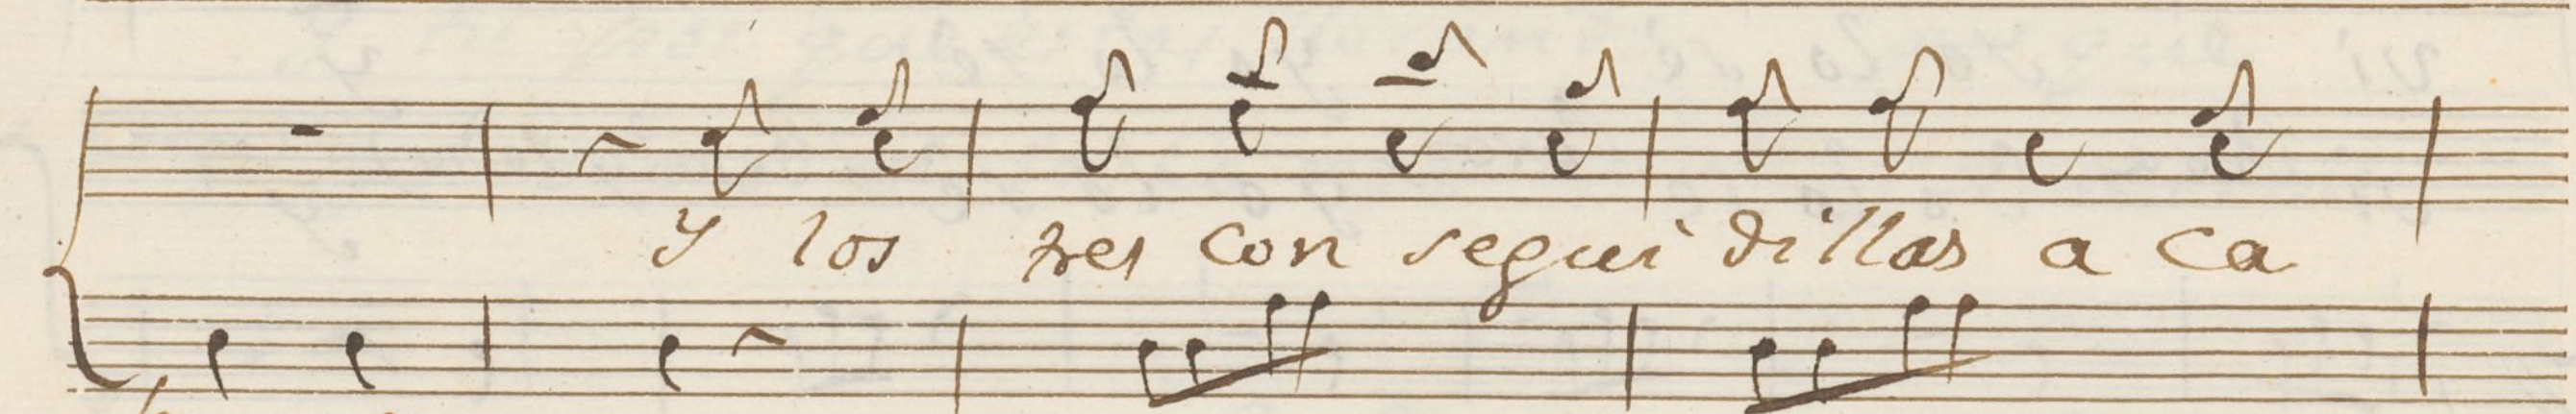 y los tres con segui dillas a ca